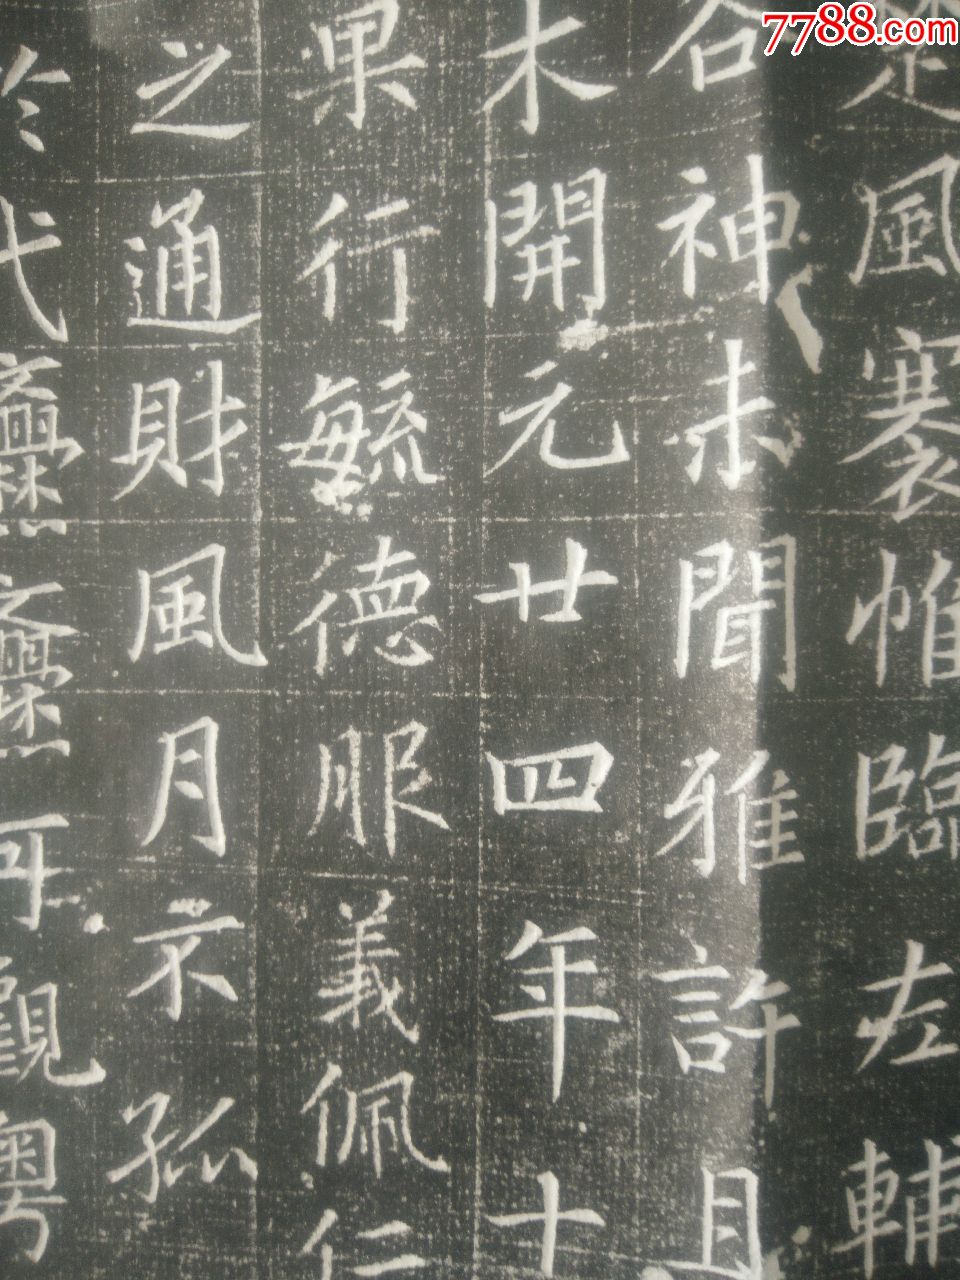 7788.com
楚風褰帷臨左輔
合神未聞雅許且
木開元廿四年十
果行毓德服義佩仁
之通財風月不孤
於代亹亹可觀粵